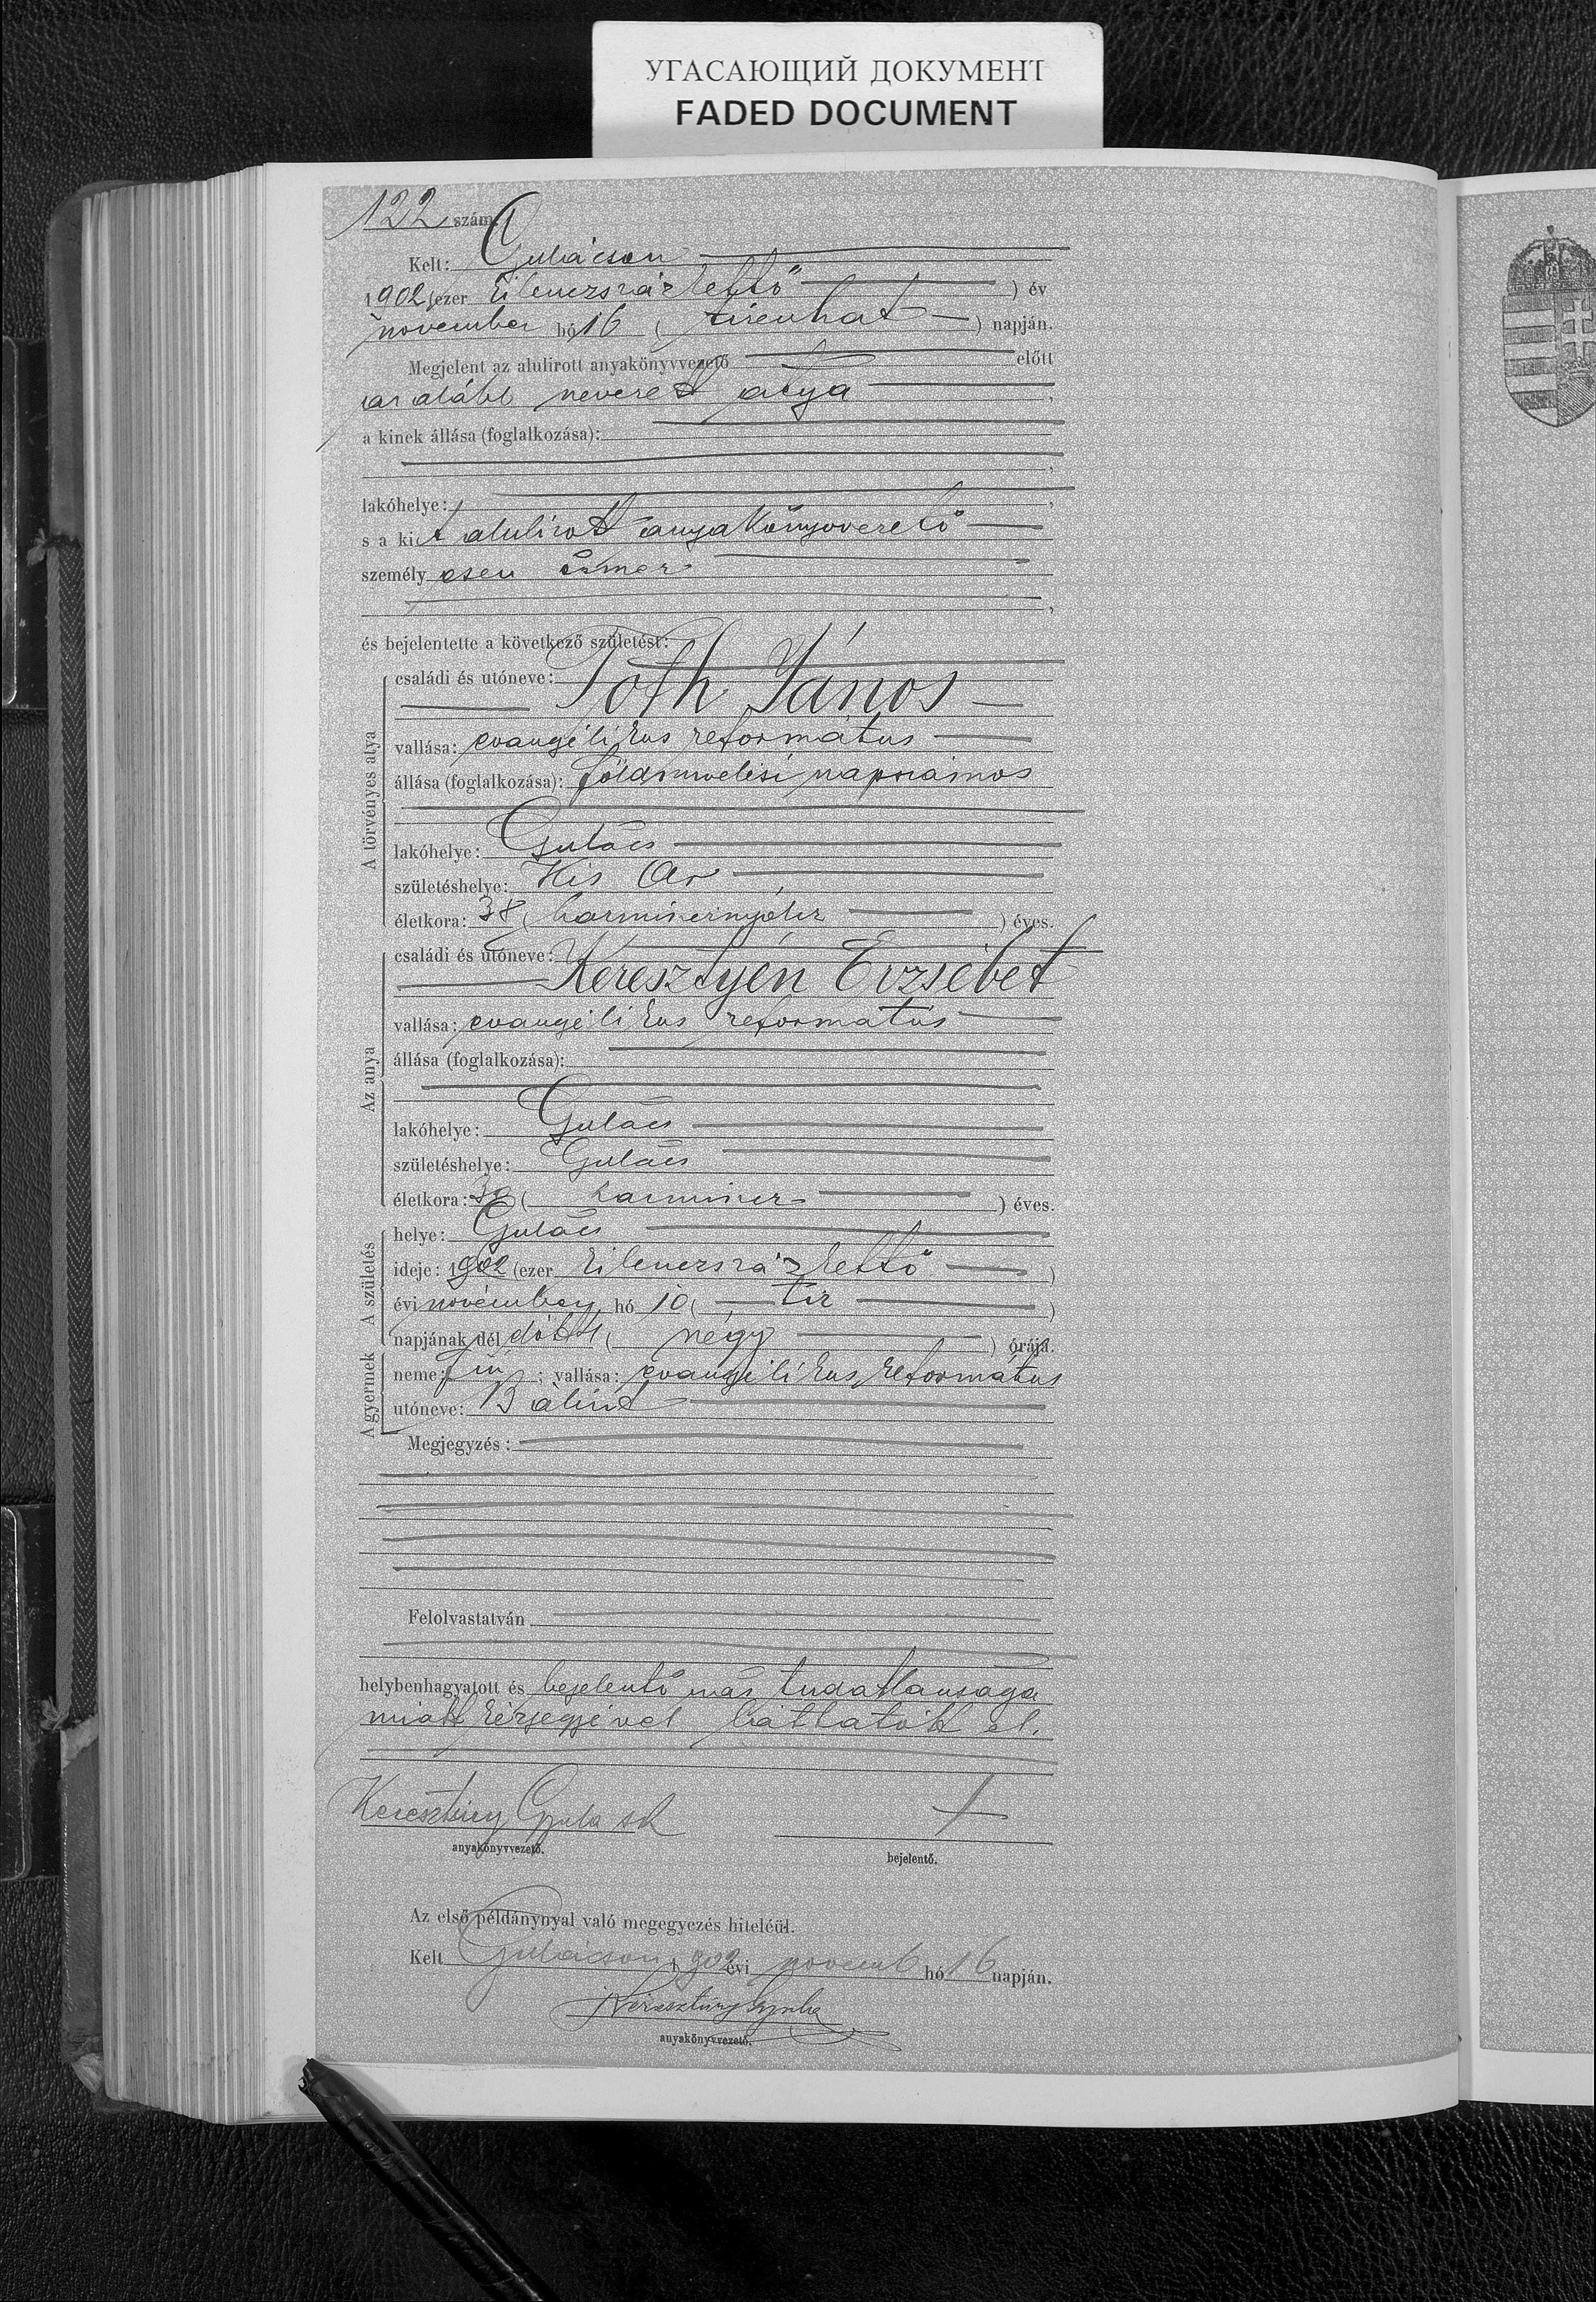 УГАСАЮЩИЙ ДОКУМЕНТ
FADED DOCUMENT
122 szám.
Kelt: Gulácson
1902 (ezer kilenczszáz kettő) év
november hó 16 (tizenhat) napján.
Megjelent az alulirott anyakönyvvezető előtt
az alább nevezett atya,
a kinek állása (foglalkozása):
lakóhelye:
s a kit alulirott anyakönyvvezető
személyesen ismer
és bejelentette a következő születést:
A törvényes atya
családi és utóneve:
Tóth János
vallása: evangélikus református
állása (foglalkozása): földmivelési napszámos
lakóhelye: Gulács
születéshelye: Kis Ar
életkora: 38 (harmincznyolcz) éves.
Az anya
családi és utóneve:
Keresztyén Erzsébet
vallása: evangélikus református
állása (foglalkozása):
lakóhelye: Gulács
születéshelye: Gulács
életkora: 30 (harmincz) éves.
A születés
helye: Gulács
ideje: 1902 (ezer kilenczszáz kettő)
évi november hó 10 (tiz)
napjának dél előtt 4 (négy) órája.
A gyermek
neme: fiú; vallása: evangélikus református
utóneve: Bálint
Megjegyzés:
Felolvastatván
helybenhagyatott és bejelentő irás tudatlansága
miatt kézjegyével láttatott el.
Keresztúry Gyula sk
anyakönyvvezető.
bejelentő.
Az első példánynyal való megegyezés hiteléül.
Kelt Gulácson, 1902 évi novemb hó 16 napján.
Keresztúry Gyula
anyakönyvvezető.